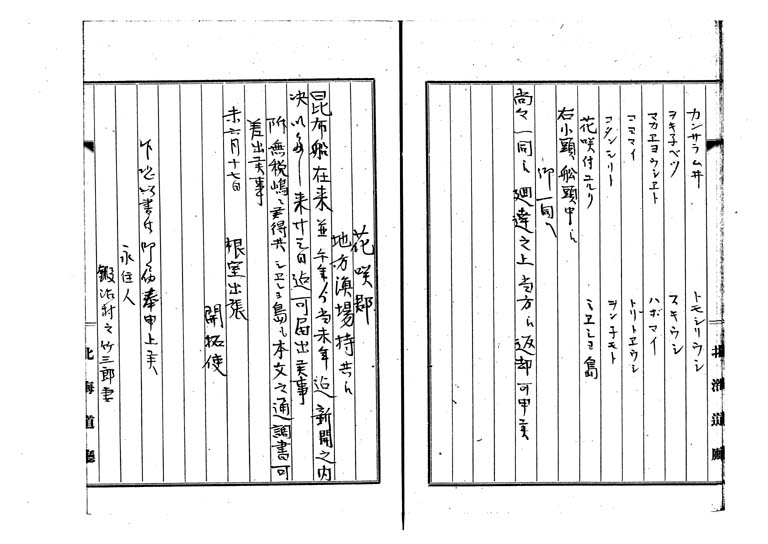 カンサラムヰ　トモシリウシ
ヲキ子ベツ　スキウシ
マカヱヨウシヱト　ハボマイ
コヱマイ　トリトヱウシ
コタンシリト　ヲン子モト
花咲付ユルリ　シヱショ島
右小頭船頭中ら
仰一同へ
尚々一同ら廻達之上当方ら返却可申候
花咲郡
地方漁場持共ら
昆布船在来並午年分当未年迄新開之内
来廿三日迄可届出候事
所無税嶋 心得共シヱショ島も本文之通調書可
差出候事
未六月十七日　根室出張
開拓使
乍恐以書付 奉申上候
永住人
鍛治村之竹三郎妻
北海道廳
北海道廳